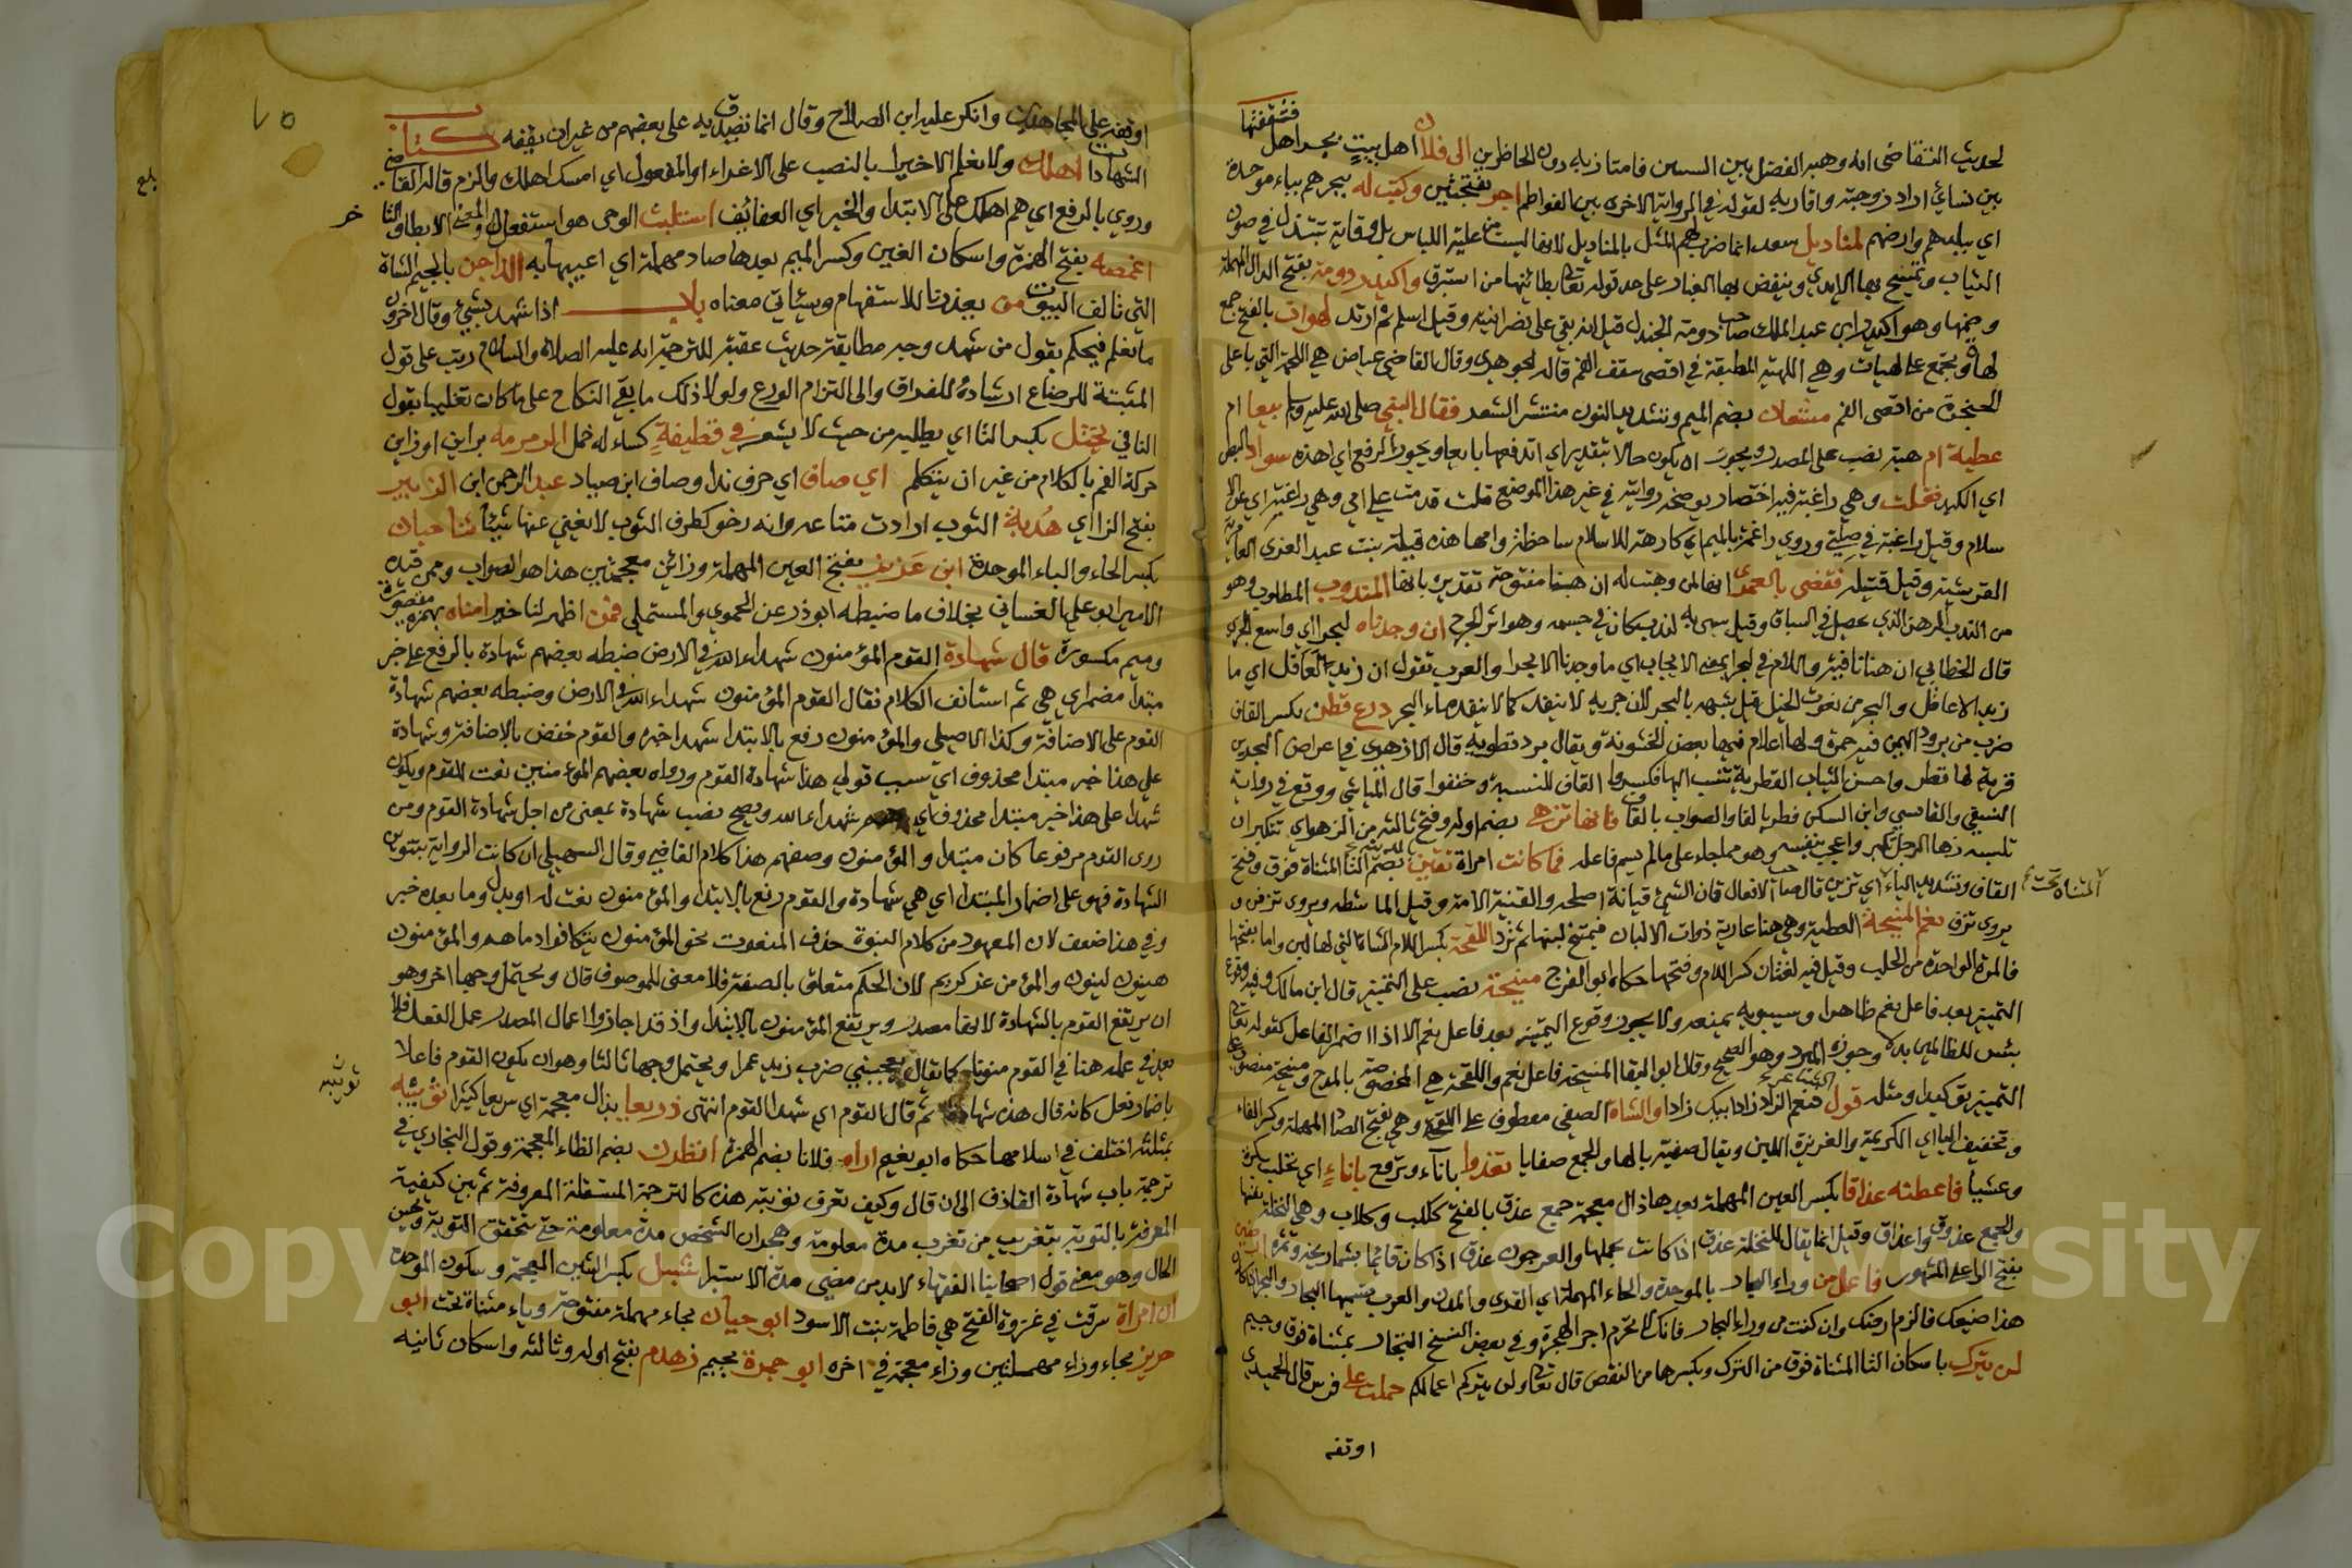 فشققتها
لحديث التقاضى انه وهبه الفضل بين السنين فامتاز به دون الحاظرين الى فلان اهل بيت بحر اهل
بين نسائي اراد زوجته واقاربه لقوله في الرواية الاخرى بين الفواطم اجر بفتحتين وكتب له ببحرهم بباء موحدة
اي ببلدهم وارضهم لمناديل سعد انما ضرب لهم المثل بالمناديل لانها ليست من علية اللباس بل وقاية تبتذل في صون
الثياب وتمسح بها الايدي وينفض بها الغبار على حد قوله تعالى بطائنها من استبرق واكيدر دومة بفتح الدال المهملة
وضمها وهو اكيدر ابن عبد الملك صاحب دومة الجندل قيل انه بقي على نصرانيته وقيل اسلم ثم ارتد لهوات بالفتح جمع
لهاة ويجمع على لهيات وهي اللهمة المطبقة في اقصى سقف الفم قاله الجوهري وقال القاضي عياض هي اللحمة التي باعلى
الحنجرة من اقصى الفم مشعان بضم الميم وتشديد النون منتشر الشعر فقال النبي صلى الله عليه وسلم بيعا ام
عطية ام هبة نصب على المصدر ويجوز ان يكون حالا بتقدير اي اتدفعها بايعا ويجوز الرفع اي اهذه سواد البطن
اي الكبد فحملت وهي راغبة فيه اختصار يوضحه روايته في غير هذا الموضع قلت قدمت علي امي وهي راغبة اي عن الا
سلام وقيل راغبة في صلتي وروي راغمة بالميم اي كارهة للاسلام ساخطة وامها هذه قبيلة بنت عبد العزى العامرية
القرشية وقيل قتيلة فقضى بالعمرى انها لمن وهبت له ان هبنا مفتوحة تقديره بانها المندوب المطلوب وهو
من الندب الرهن الذي يحصل في السباق وقيل سمي به لندب كان في جسمه وهو اثر الجرح ان وجدناه لبحرا اي واسع الجري
قال الخطابي ان هنا نافية واللام في لبحرا بمعنى الا ايجاب اي ما وجدنا الا بحرا والعرب تقول ان زيد لعاقل اي ما
زيد الا عاقل والبحر من نعوت الخيل قيل شبهه بالبحر لان جريه لا ينفد كما لا ينفد ماء البحر درع قطر بكسر القاف
ضرب من برود اليمن فيه حمرة ولها اعلام فيها بعض الخشونة ويقال برد قطرية قال الازهري في اعراض البحرين
قرية لها قطر واحسن الثياب القطرية تنسب اليها فكسروا القاف للنسبة وخففوا قال الياشي ووقع في رواية
النسفي والقابسي وابن السكن فطر بالفا والصواب بالقاف فانها تزهى بضم اوله وفتح ثالثه من الزهو اي تتكبر ان
تلبسه زها الرجل تكبر واعجب بنفسه وهو مما جاء على ما لم يسم فاعله فما كانت امراة تقين بضم التا المثناة فوق وفتح
المثناة تحت
القاف وتشديد الياء اي تزين قال صاحب الافعال قان الشيئ قيانة اصلحه والقينة الامة وقيل الماشطة ويروى تزفن و
يروى تزف نعم المنيحة العطية وهي هنا عارية ذوات الالبان فيمنح لبنها ثم ترد اللقحة بكسر اللام الشاة التي لها لبن واما بفتحها
فالمرة الواحدة من الحلب وقيل فيه لغتان كسر اللام وفتحها حكاه ابو الفرج منيحة نصب على التمييز قال ابن مالك وفيه وقوع
التمييز بعد فاعل نعم ظاهرا وسيبويه يمنعه ولا يجوز وقوع التمييز بعد فاعل نعم الا اذا اضمر الفاعل كقوله تعالى
بئس للظالمين بدلا وجوزه المبرد وهو الصحيح وقال ابو البقا المنيحة فاعل نعم واللقحة هي المخصوصة بالمدح ومنيحة منصوب على
التمييز توكيدا ومثله قول الشاعر فنعم الزاد زاد ابيك زادا والشاة الصفي معطوف على اللقحة وهي بفتح الصاد المهملة وكسر الفاء
وتخفيف الياء اي الكريمة والغزيرة اللبن ويقال صفية بالهاء والجمع صفايا تغدوا باناء وتروح باناء اي تحلب بكرة
وعشيا فاعطته عذاقا بكسر العين المهملة بعدها ذال معجمة جمع عذق بالفتح ككلب وكلاب وهي النخلة نفسها
والجمع عذوق واعذاق وقيل انما يقال للنخلة عذق اذا كانت بحملها والعرجون عذق اذا كان قائما بشماريخه وتمره
بفتح الراء على المشهور فاعمل من وراء البحار بالموحدة والحاء المهملة اي القرى والمدن والعرب تسميها البحار والبحرة
هذا ضيعك فالزم ارضك وان كنت من وراء البحار فانك لا تحرم اجر الهجرة وفي بعض النسخ التجار بمثناة فوق وجيم
لن يترك باسكان التا المثناة فوق من الترك وبكسرها من النقص قال تعالى ولن يتركم اعمالكم حملت على فرس قال الحميدي
اوقفه
٧٥
اوقفه على المجاهدين وانكر عليه ابن الصلاح وقال انما تصدق به على بعضهم من غير ان يقفه كتاب
الشهادات اهلك ولا نعلم الا خيرا بالنصب على الاغراء او المفعول اي امسك اهلك والزم قاله القاضي
وروي بالرفع اي هم اهلك على الابتدا والخبر اي العفائف استلبث الوحى هو استفعل والمعنى الابطا والتا
خر
اغمصه بفتح الهمزة واسكان الغين وكسر الميم بعدها صاد مهملة اي اعيبها به الداجن بالجيم الشاة
التي تالف البيوت من يعذرنا للاستفهام وسياتي معناه باب اذا شهد بشيئ وقال اخرون
ما نعلم فيحكم بقول من شهد وجه مطابقة حديث عقبة للترجمة انه عليه الصلاة والسلام رتب على قول
المثبتة للرضاع ارشاده للفراق والى التزام الورع ولولا ذلك ما بقي النكاح على ما كان تغليبا بقول
النافي يختل بكسر التا اي يطلبه من حيث لا يشعر في قطيفة كساء له خمل الرمرمه براين او زاين
حركة الفم بالكلام من غير ان يتكلم اي صاف اي حرف ندا وصاف ابن صياد عبد الرحمن ابن الزبير
بفتح الزا اي هدبة الثوب ارادت متاعه وانه رخو كطرف الثوب لا يغني عنها شيئا ثنا حبان
بكسر الحاء والباء الموحدة ابن عزيز بفتح العين المهملة وزائين معجمتين هذا هو الصواب وممن قيده
الامير ابو علي الغساني بخلاف ما ضبطه ابو ذر عن الحموي والمستملي فمن اظهر لنا خيرا امناه بهمزة مقصورة
وميم مكسورة قال شهادة القوم المؤمنون شهداء الله في الارض ضبطه بعضهم شهادة بالرفع على خبر
مبتدأ مضمر اي هي ثم استانف الكلام فقال القوم المؤمنون شهداء الله في الارض وضبطه بعضهم شهادة
القوم على الاضافة وكذا الاصيلي والمؤمنون رفع بالابتدا شهدا خبره والقوم خفض بالاضافة وشهادة
على هذا خبر مبتدا محذوف اي سبب قولي هذا شهادة القوم ورواه بعضهم المؤمنين نعت للقوم ويكون
شهدا على هذا خبر مبتدا محذوف اي هم شهداء الله ويصح نصب شهادة بمعنى من اجل شهادة القوم ومن
روى القوم مرفوعا كان مبتدا والمؤمنون وصفهم هذا كلام القاضي وقال السهيلي ان كانت الرواية بتنوين
الشهادة فهو على اضمار المبتدا اي هي شهادة والقوم رفع بالابتدا والمؤمنون نعت له او بدل وما بعده خبر
وفي هذا ضعف لان المعهود من كلام النبوة حذف المنعوت نحو المؤمنون تتكافوا دماهم والمؤمنون
هينون لينون والمؤمن غر كريم لان الحكم متعلق بالصفة فلا معنى للموصوف قال ويحتمل وجها اخر وهو
ان يرتفع القوم بالشهادة لانها مصدر ويرتفع المؤمنون بالابتدا واذ قد اجازوا اعمال المصدر عمل الفعل فلا
بعد في عمله هنا في القوم منونا كما تقال يعجبني ضرب زيد عمرا ويحتمل وجها ثالثا وهو ان يكون القوم فاعلا
باضمار فعل كانه قال هذه شهادة ثم قال القوم اي شهد القوم انتهى ذريعا بذال معجمة اي سريعا كثيرا ثويبه
ثويبه
بثلثه اختلف في اسلامها حكاه ابو نعيم اراه فلانا بضم الهمزة انظرن بضم الظاء المعجمة وقول البخاري في
ترجمة باب شهادة القاذف الى ان قال وكيف تعرف توبته هذه كالترجمة المستقلة المعروفة ثم بين كيفية
المعرفة بالتوبة بتغريب من تغرب مدة معلومة وهجران الشخص مدة معلومة حتى تتحقق التوبة ويحسن
الحال وهو معنى قول اصحابنا الفقهاء لابد من مضي مدة الاستبرا شبل بكسر الشين المعجمة وسكون الموحدة
ان امراة سرقت في غزوة الفتح هي فاطمة بنت الاسود ابو حيان بحاء مهملة مفتوحة وياء مثناة تحت ابو
حريز بحاء وراء مهملتين وزاء معجمة في اخره ابو جمرة بجيم زهدم بفتح اوله وثالثه واسكان ثانيه
بلغ
Copyright © King Saud University